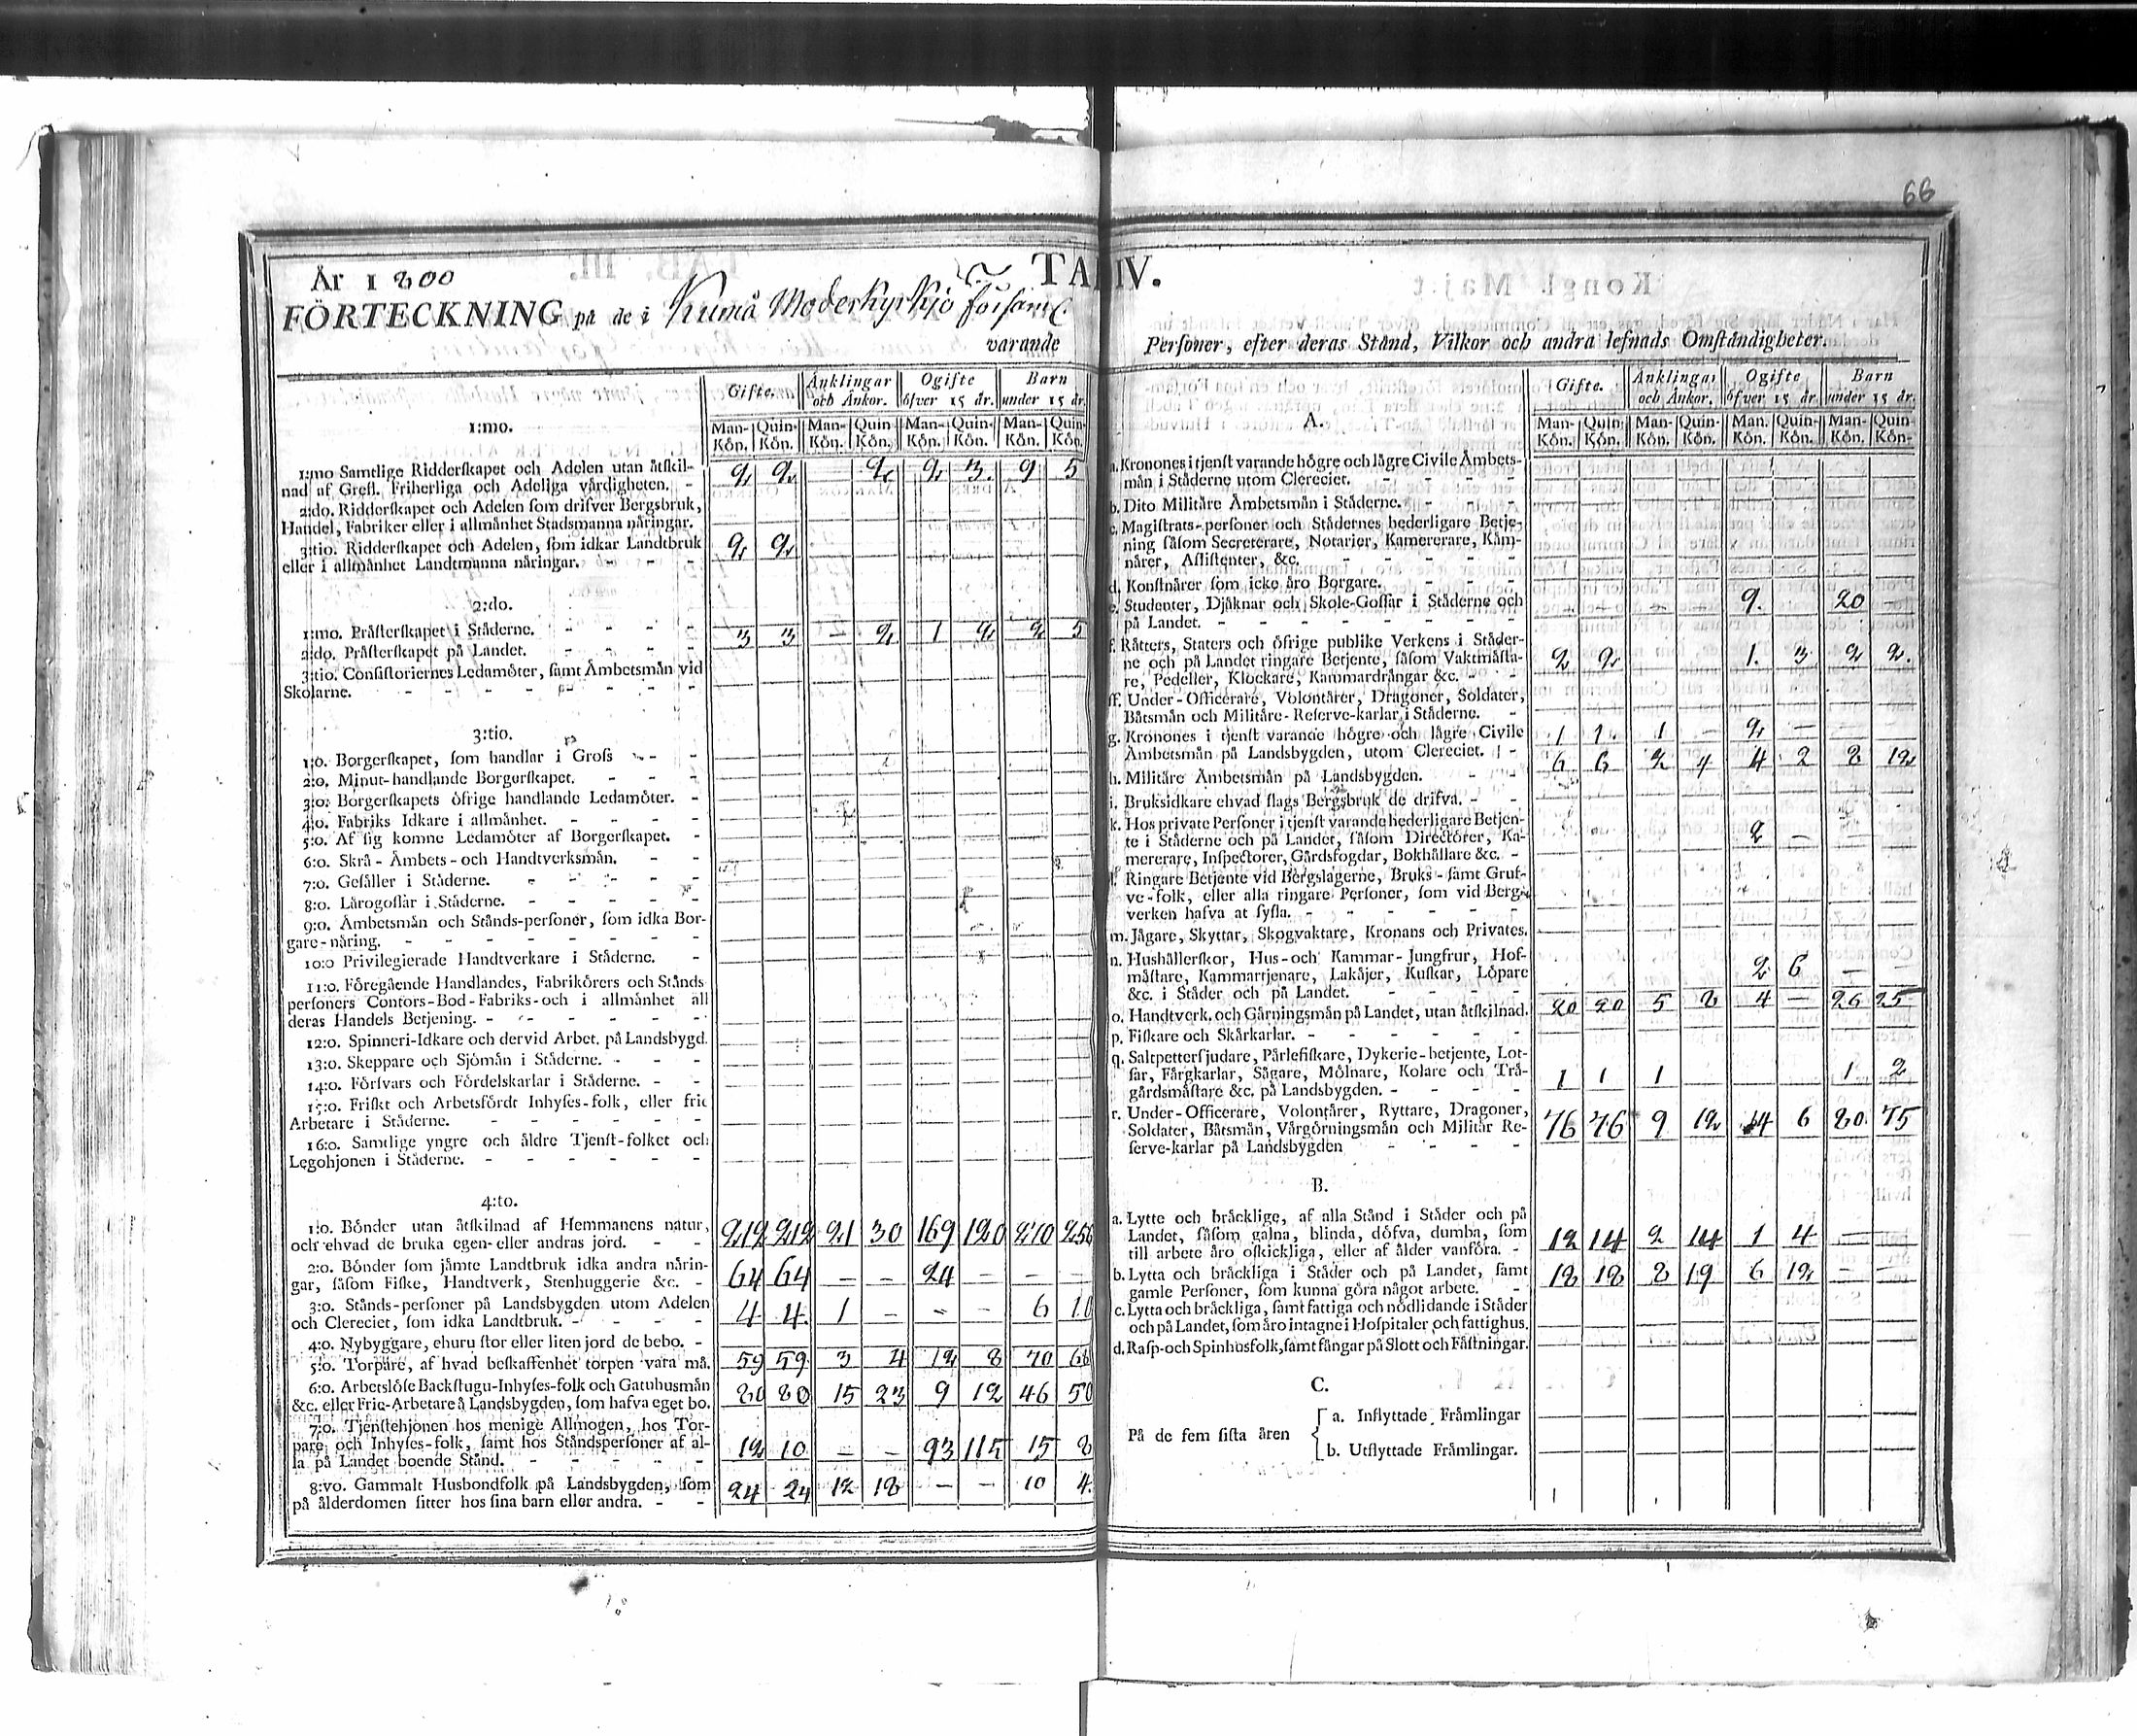 66
År 1800
TAB IV.
FÖRTECKNING på de i Kumå Moderkyrkjo församl.
varande
Personer, efter deras Stånd, Vilkor och andra lefnads Omståndigheter.
Gifte. Änklingar och Änkor. Ogifte öfver 15 år. Barn under 15 år.
1:mo.
Man-Kön. Quin-Kön. Man-Kön. Quin-Kön. Man-Kön. Quin-Kön. Man-Kön. Quin-Kön.
1:mo Samtlige Ridderskapet och Adelen utan åtskil-
nad af Grefl. Friherliga och Adeliga vårdigheten. - 2 2 2 2 3. 9 5
2:do. Ridderskapet och Adelen som drifver Bergsbruk,
Handel, Fabriker eller i allmånhet Stadsmanna nåringar.
3:tio. Ridderskapet och Adelen, som idkar Landtbruk 2 2
eller i allmånhet Landtmanna nåringar. - - -
2:do.
1:mo. Pråsterskapet i Ståderne. - - - - 3 3 - 2 1 2 2 5
2:do. Pråsterskapet på Landet. - - - -
3:tio. Consistoriernes Ledamöter, samt Åmbetsmån vid
Skolarne. - - - - - - -
3:tio.
1:o. Borgerskapet, som handlar i Grofs - -
2:o. Minut-handlande Borgerskapet. - - -
3:o. Borgerskapets öfrige handlande Ledamöter. -
4:o. Fabriks Idkare i allmånhet. - - - -
5:o. Af sig komne Ledamöter af Borgerskapet. -
6:o. Skrå-Åmbets-och Handtverksmån. - -
7:o. Gesåller i Ståderne. - - - - -
8:o. Lårogossar i Ståderne. - - - - -
9:o. Åmbetsmån och Stånds-personer, som idka Bor-
gare-nåring. - - - - - - -
10:o Privilegierade Handtverkare i Ståderne. -
11:o. Föregående Handlandes, Fabrikörers och Stånds
personers Contors-Bod-Fabriks-och i allmånhet all
deras Handels Betjening. - - - - - -
12:o. Spinneri-Idkare och dervid Arbet. på Landsbygd.
13:o. Skeppare och Sjömån i Ståderne. - - -
14:o. Försvars och Fördelskarlar i Ståderne. - -
15:o. Friskt och Arbetsfördt Inhyses-folk, eller frie
Arbetare i Ståderne. - - - - - -
16:o. Samtlige yngre och åldre Tjenst-folket och
Legohjonen i Ståderne. - - - - - -
4:to.
1:o. Bönder utan åtskilnad af Hemmanens natur,
och ehvad de bruka egen-eller andras jord. - - 212 212 21 30 169 120 270 256
2:o. Bönder som jåmte Landtbruk idka andra nårin-
gar, såsom Fiske, Handtverk, Stenhuggerie &c. - 64 64 - - 24 - - -
3:o. Stånds-personer på Landsbygden utom Adelen
och Clereciet, som idka Landtbruk. - - - 4 4. 1 - - - 6 10
4:o. Nybyggare, ehuru stor eller liten jord de bebo. -
5:o. Torpare, af hvad beskaffenhet torpen vara må. 59 59. 3 4 12 8 70 68
6:o. Arbetslöse Backstugu-Inhyses-folk och Gatuhusmån
&c. eller Frie-Arbetare å Landsbygden, som hafva eget bo. 80 80 15 23 9 12 46 50
7:o. Tjenstehjonen hos menige Allmogen, hos Tor-
pare och Inhyses-folk, samt hos Ståndspersoner af al-
la på Landet boende Stånd. - - - - - 12 10 - - 93 115 15 8
8:vo. Gammalt Husbondfolk på Landsbygden, som
på ålderdomen sitter hos sina barn eller andra. - - 24 24 12 18 - - 10 4.
Gifte. Änklingar och Änkor. Ogifte öfver 15 år. Barn under 15 år.
A.
Man-Kön. Quin-Kön. Man-Kön. Quin-Kön. Man. Kön. Quin-Kön. Man-Kön. Quin-Kön-
a. Kronones i tjenst varande högre och lågre Civile Åmbets-
mån i Ståderne utom Clereciet. - - - -
b. Dito Militåre Åmbetsmån i Ståderne. - - -
c. Magistrats-personer och Stådernes hederligare Betje-
ning såsom Secreterare, Notarier, Kamererare, Kåm-
nårer, Assistenter, &c. - - - - -
d. Konstnårer som icke åro Borgare. - - -
e. Studenter, Djåknar och Skole-Gossar i Ståderne och - - - - 9. 20 -
på Landet. - - - - - - - -
f. Råtters, Staters och öfrige publike Verkens i Ståder-
ne och på Landet ringare Betjente, såsom Vaktmåsta- 2 2 1. 3 2 2.
re, Pedeller, Klockare, Kammardrångar &c. - -
ff. Under-Officerare, Volontårer, Dragoner, Soldater,
Båtsmån och Militåre-Reserve-karlar i Ståderne. -
g. Kronones i tjenst varande högre och lågre Civile 1 1. 1 - 2 - - -
Åmbetsmån på Landsbygden, utom Clereciet. -
h. Militåre Åmbetsmån på Landsbygden. - - 6 6 2 4 4 2 8 12
i. Bruksidkare ehvad slags Bergsbruk de drifva. - -
k. Hos private Personer i tjenst varande hederligare Betjen-
te i Ståderne och på Landet, såsom Directörer, Ka- 2 - -
mererare, Inspectorer, Gårdsfogdar, Bokhållare &c. -
l. Ringare Betjente vid Bergslagerne, Bruks-samt Gruf-
ve-folk, eller alla ringare Personer, som vid Berg-
verken hafva at sysla. - - - - - -
m. Jågare, Skyttar, Skogvaktare, Kronans och Privates.
n. Hushållerskor, Hus-och Kammar-Jungfrur, Hof-
måstare, Kammartjenare, Lakåjer, Kuskar, Löpare 2 6 - -
&c. i Ståder och på Landet. - - - -
o. Handtverk. och Gårningsmån på Landet, utan åtskilnad. 20 20 5 8 4 - 26 25
p. Fiskare och Skårkarlar. - - - - - -
q. Saltpettersjudare, Pårlefiskare, Dykerie-betjente, Lot-
sar, Fårgkarlar, Sågare, Mölnare, Kolare och Trå- 1 1 1 1 2
gårdsmåstare &c. på Landsbygden. - - - -
r. Under-Officerare, Volontårer, Ryttare, Dragoner,
Soldater, Båtsmån, Vårgörningsmån och Militår Re- 76 76 9 12 4 6 80. 75
serve-karlar på Landsbygden - - - -
B.
a. Lytte och bråcklige, af alla Stånd i Ståder och på
Landet, såsom galna, blinda, döfva, dumba, som 12 14 2 14 1 4 - -
till arbete åro oskickliga, eller af ålder vanföra. -
b. Lytta och bråckliga i Ståder och på Landet, samt 18 18 8 19 6 12 - -
gamle Personer, som kunna göra något arbete. -
c. Lytta och bråckliga, samt fattiga och nödlidande i Ståder
och på Landet, som åro intagne i Hospitaler och fattighus.
d. Rasp-och Spinhusfolk, samt fångar på Slott och Fåstningar.
C.
På de fem sista åren
a. Inflyttade Fråmlingar
b. Utflyttade Fråmlingar.